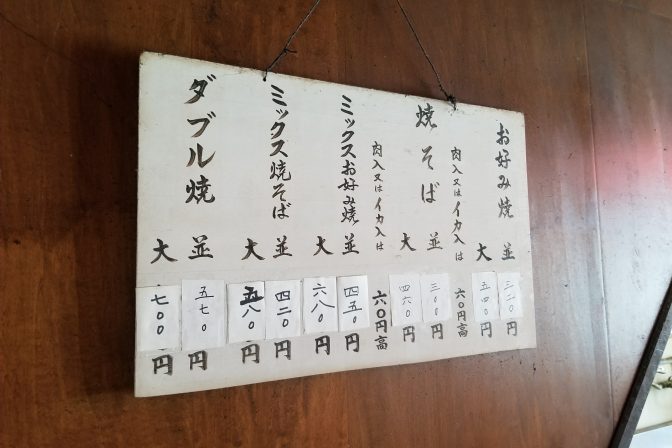 お好み焼 並 三二〇円
大 五四〇円
肉入又はイカ入は 六〇円高
焼そば 並 三〇〇円
大 四六〇円
肉入又はイカ入は 六〇円高
ミックスお好み焼 並 四五〇円
大 六八〇円
ミックス焼そば 並 四二〇円
大 五八〇円
ダブル焼 並 五七〇円
大 七〇〇円